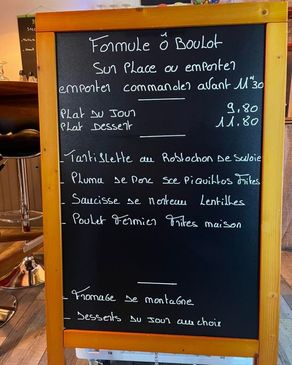 Formule ô Boulot
Sur Place ou emporter
emporter commander avant 11h30
Plat du Jour 9.80
Plat Dessert 11.80
- Tartiflette au Roblochon de Savoie
- Pluma de Porc sce Piquillos Frites
- Saucisse de Morteau Lentilles
- Poulet Fermier Frites maison
- Fromage de montagne
- Desserts du Jour au choix